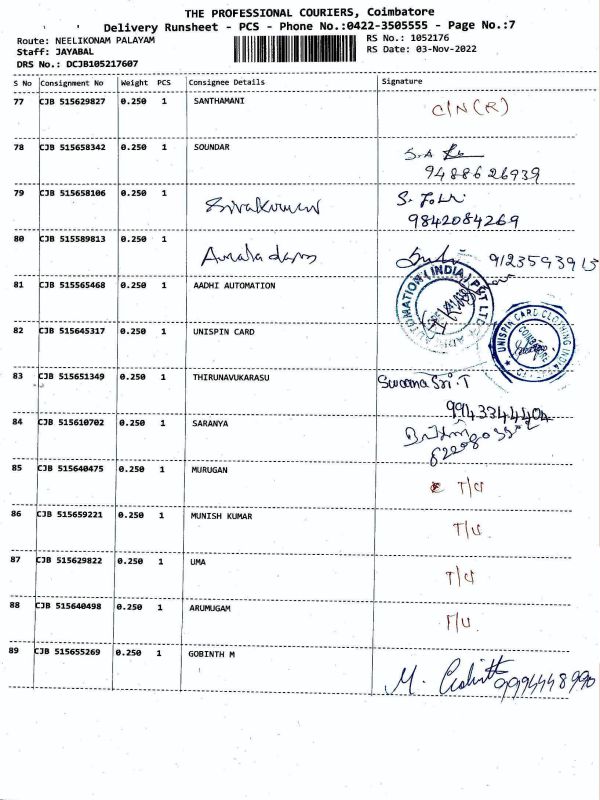 THE PROFESSIONAL COURIERS, Coimbatore
Delivery Runsheet - PCS - Phone No.:0422-3505555 - Page No.:7
Route: NEELIKONAM PALAYAM
RS No.: 1052176
Staff: JAYABAL
RS Date: 03-Nov-2022
DRS No.: DCJB105217607
S No Consignment No Weight PCS Consignee Details Signature
77 CJB 515629827 0.250 1 SANTHAMANI C/N (R)
78 CJB 515658342 0.250 1 SOUNDAR
9488626939
79 CJB 515658106 0.250 1 Sivakumar
9842084269
80 CJB 515589813 0.250 1 9123593915
81 CJB 515565468 0.250 1 AADHI AUTOMATION
82 CJB 515645317 0.250 1 UNISPIN CARD
UNISPIN CARD CLOTHING INDIA
83 CJB 515651349 0.250 1 THIRUNAVUKARASU
9943344404
84 CJB 515610702 0.250 1 SARANYA
85 CJB 515640475 0.250 1 MURUGAN T/U
86 CJB 515659221 0.250 1 MUNISH KUMAR T/U
87 CJB 515629822 0.250 1 UMA T/U
88 CJB 515640498 0.250 1 ARUMUGAM T/U
89 CJB 515655269 0.250 1 GOBINTH M
9994448990